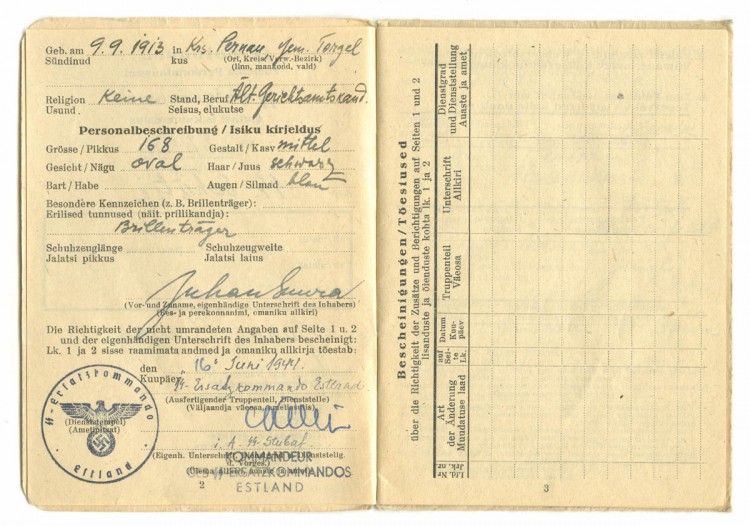 Geb. am 9.9.1913 in Krs. Pernau, Gem. Torgel
Sündinud kus (Ort, Kreis/Verw.-Bezirk)
(linn, maakond, vald)
Religion Keine Stand, Beruf Ält. Gerichtsamtskand.
Usund Seisus, elukutse
Personalbeschreibung / Isiku kirjeldus
Grösse / Pikkus 168 Gestalt / Kasv mittel
Gesicht / Nägu oval Haar / Juus schwarz
Bart / Habe Augen / Silmad blau
Besondere Kennzeichen (z. B. Brillenträger):
Erilised tunnused (näit. prillikandja):
Brillenträger
Schuhzenglänge Schuhzeugweite
Jalatsi pikkus Jalatsi laius
Juhan
(Vor- und Zuname, eigenhändige Unterschrift des Inhabers)
(Ees- ja perekonnanimi, omaniku allkiri)
Die Richtigkeit der nicht umrandeten Angaben auf Seite 1 u. 2
und der eigenhändigen Unterschrift des Inhabers bescheinigt:
Lk. 1 ja 2 sisse raamimata andmed ja omaniku allkirja tõestab:
den 16. Juni 1944.
Kuupäev
SS-Ersatzkommando Estland
(Ausfertigender Truppenteil, Dienststelle)
(Väljaandja väeosa, ametiasutus)
SS-Ersatzkommando
Estland
(Dienststempel)
(Ametipitsat)
i. A. SS-Stubaf.
(Eigenh. Unterschr.
d. Vorges.)
KOMMANDEUR
DES SS-ERSATZKOMMANDOS
ESTLAND
2
Bescheinigungen / Tõestused
über die Richtigkeit der Zusätze und Berichtigungen auf Seiten 1 und 2
lisanduste ja õienduste kohta lk. 1 ja 2
Lfd. Nr.
Jrk. nr.
Art
der Änderung
Muudatuse laad
auf Seite
Lk.
Datum
Kuupäev
Truppenteil
Väeosa
Unterschrift
Allkiri
Dienstgrad
und Dienststellung
Auaste ja amet
3